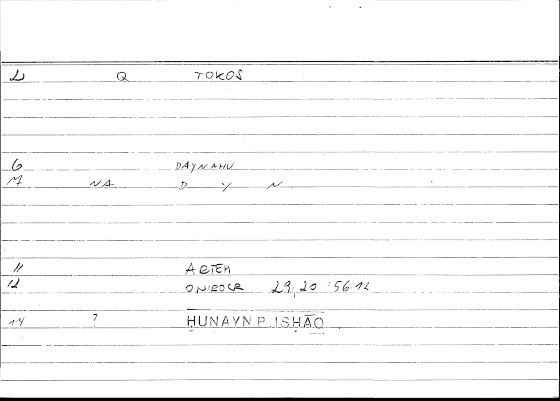 2 Q TOKOS
6 DAYNAHU
M NA D Y N
11 ARTEM
12 ONIROCR 29,20 :56.12
14 ? HUNAYN P. ISHĀQ